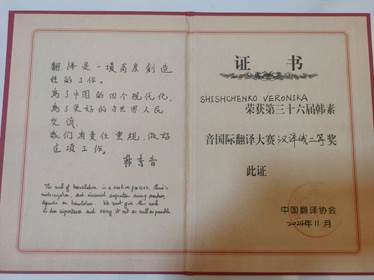 翻译是一项高度创造
性的工作。
为了中国的四个现代化,
为了更好的与世界人民
交流,
我们有责任重视、做好
这项工作。
韩素音
The work of translation is a creative process.
and
translation. We must give this work
its due importance and carry it out as well as possible
证书
SHISHCHENKO VERONIKA
荣获第三十六届韩素
音国际翻译大赛汉译俄二等奖
此证
中国翻译协会
2024年11月